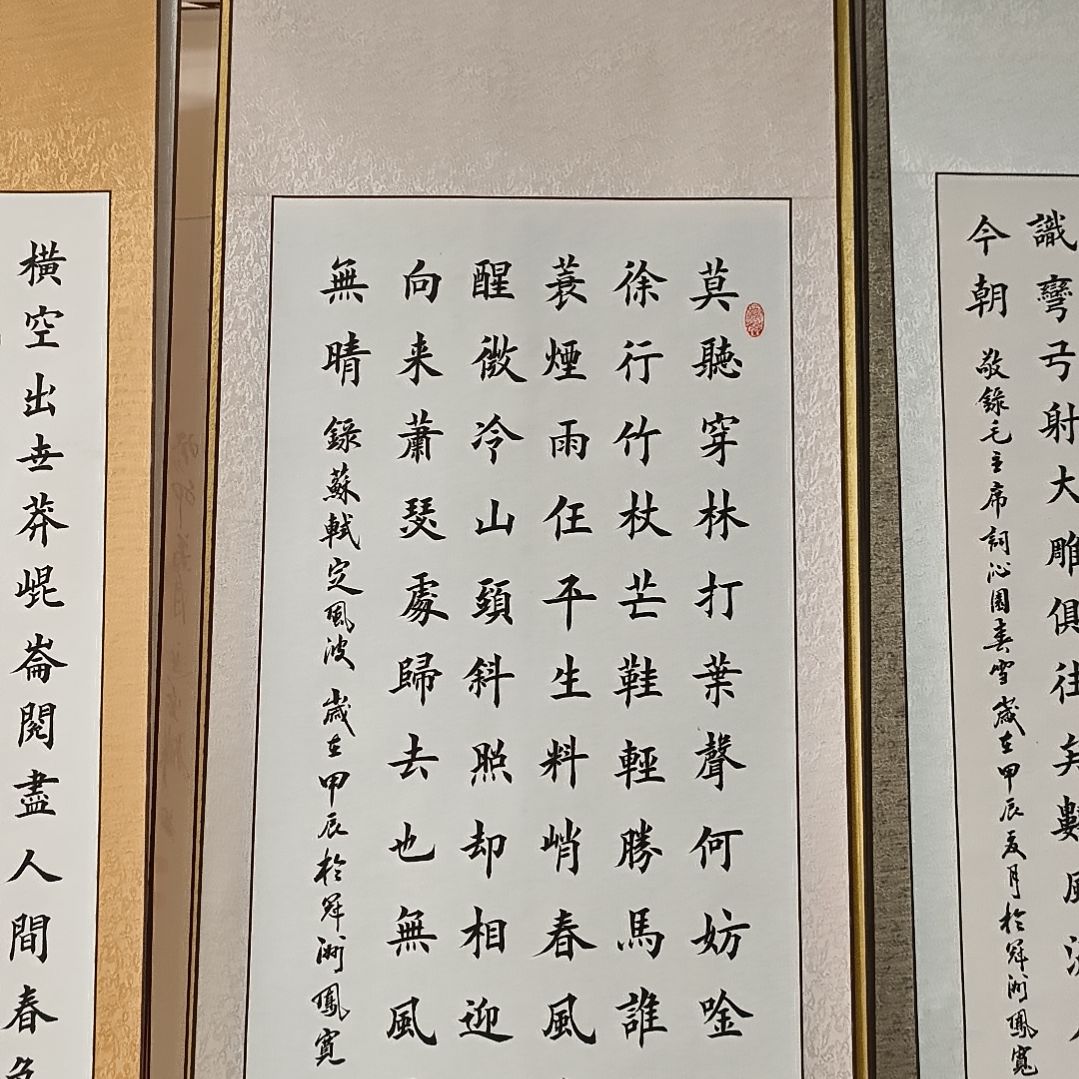 識彎弓射大雕俱往矣數風流人
今朝 敬錄毛主席詞沁園春雪歲在甲辰夏月於洲鳳寬
莫聽穿林打葉聲何妨唫
徐行竹杖芒鞋輕勝馬誰
蓑煙雨任平生料峭春風
醒微冷山頭斜照却相迎
向来蕭瑟處歸去也無風
無晴 錄蘇軾定風波 歲在甲辰於洲鳳寬
橫空出世莽崐崙閱盡人間春色